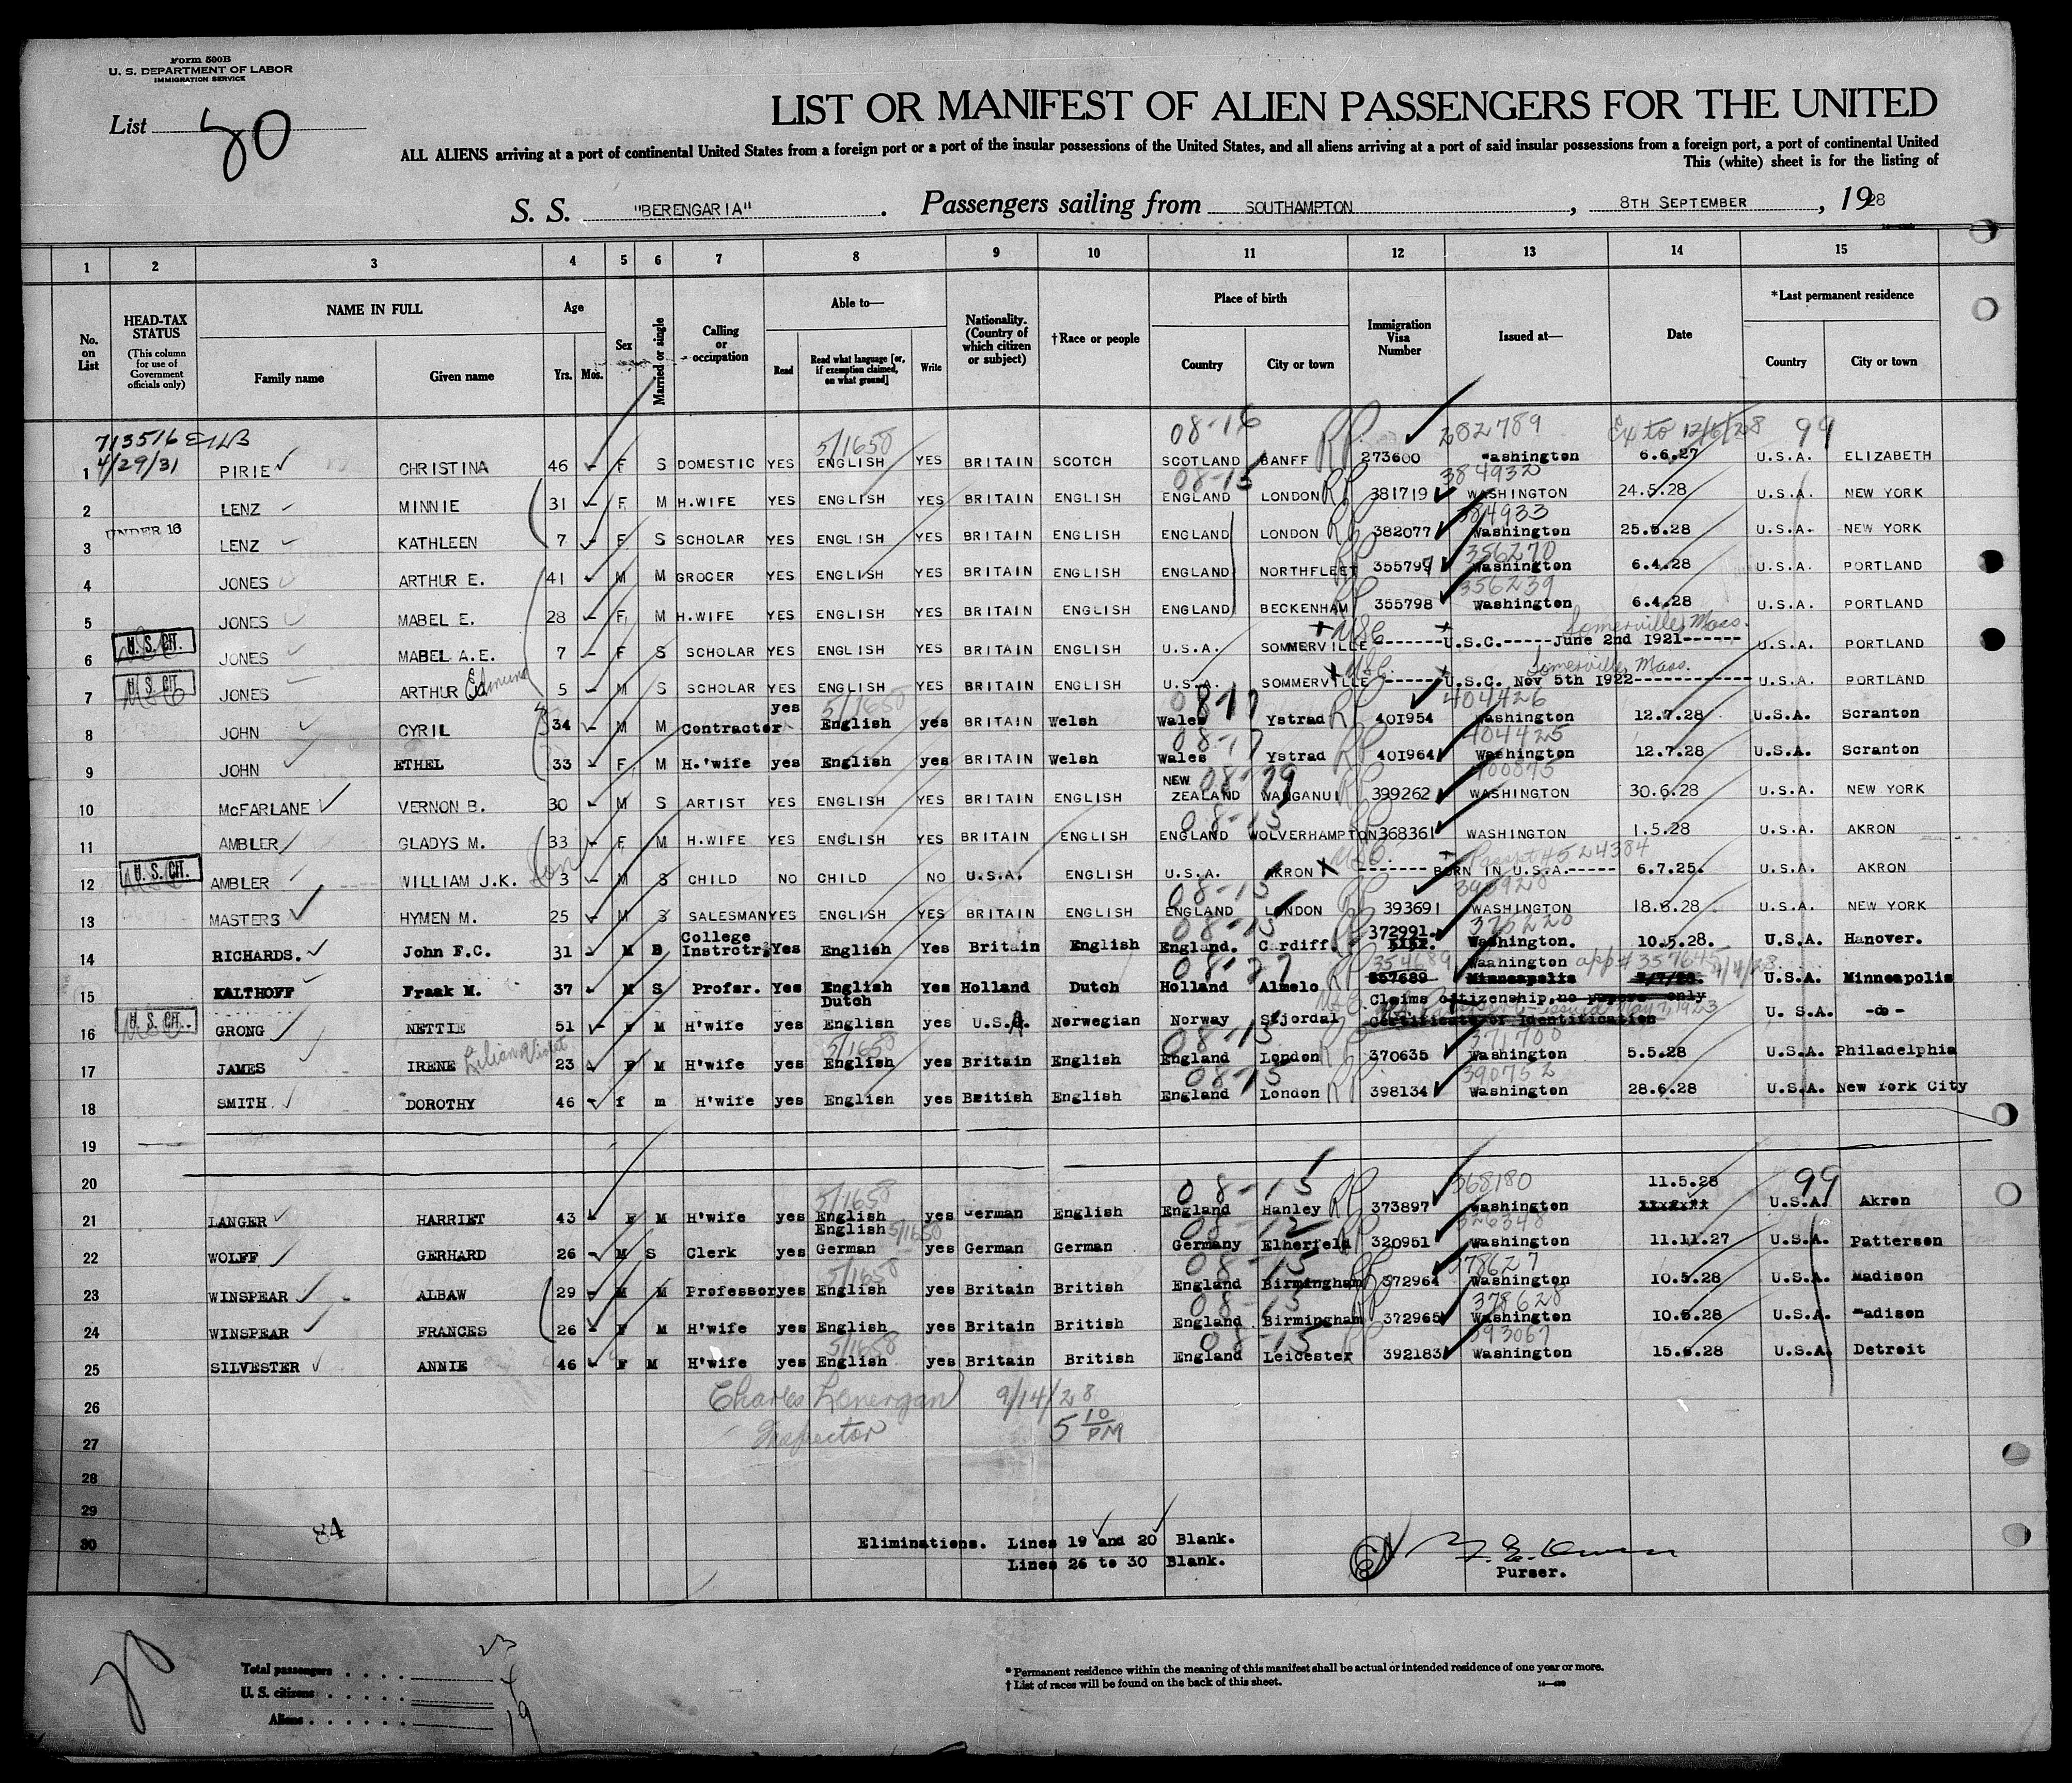 Form 500B
U. S. DEPARTMENT OF LABOR
IMMIGRATION SERVICE
List 80
LIST OR MANIFEST OF ALIEN PASSENGERS FOR THE UNITED
ALL ALIENS arriving at a port of continental United States from a foreign port or a port of the insular possessions of the United States, and all aliens arriving at a port of said insular possessions from a foreign port, a port of continental United
This (white) sheet is for the listing of
S. S. "BERENGARIA". Passengers sailing from SOUTHAMPTON, 8TH SEPTEMBER, 1928
1 2 3 4 5 6 7 8 9 10 11 12 13 14 15
No. on List HEAD-TAX STATUS (This column for use of Government officials only) NAME IN FULL Family name Given name Age Yrs. Mos. Sex Married or single Calling or occupation Able to— Read Read what language [or, if exemption claimed, on what ground] Write Nationality. (Country of which citizen or subject) †Race or people Place of birth Country City or town Immigration Visa Number Issued at— Date *Last permanent residence Country City or town
713516 08-16 282789 Ex to 12/6/28 99
4/29/31 5/1658
1 PIRIE CHRISTINA 46 F S DOMESTIC YES ENGLISH YES BRITAIN SCOTCH SCOTLAND BANFF RP 273600 Washington 6.6.27 U.S.A. ELIZABETH
08-15 384932
2 LENZ MINNIE 31 F M H.WIFE YES ENGLISH YES BRITAIN ENGLISH ENGLAND LONDON RP 381719 WASHINGTON 24.5.28 U.S.A. NEW YORK
UNDER 16 384933
3 LENZ KATHLEEN 7 F S SCHOLAR YES ENGLISH YES BRITAIN ENGLISH ENGLAND LONDON RP 382077 Washington 25.5.28 U.S.A. NEW YORK
356270
4 JONES ARTHUR E. 41 M M GROCER YES ENGLISH YES BRITAIN ENGLISH ENGLAND NORTHFLEET RP 355799 Washington 6.4.28 U.S.A. PORTLAND
356239
5 JONES MABEL E. 28 F M H.WIFE YES ENGLISH YES BRITAIN ENGLISH ENGLAND BECKENHAM RP 355798 Washington 6.4.28 U.S.A. PORTLAND
U. S. CIT. Somerville, Mass.
6 JONES MABEL A.E. 7 F S SCHOLAR YES ENGLISH YES BRITAIN ENGLISH U.S.A. SOMMERVILLE -------U.S.C.-----June 2nd 1921------ U.S.A. PORTLAND
U. S. CIT. Somerville, Mass.
7 JONES ARTHUR Edmund 5 M S SCHOLAR YES ENGLISH YES BRITAIN ENGLISH U.S.A. SOMMERVILLE ------U.S.C. Nov 5th 1922------------- U.S.A. PORTLAND
5/1658 08-17 404426
8 JOHN CYRIL 34 M M Contractor yes English yes BRITAIN Welsh Wales Ystrad RP 401954 Washington 12.7.28 U.S.A. Scranton
08-17 404425
9 JOHN ETHEL 33 F M H.'wife yes English yes BRITAIN Welsh Wales Ystrad RP 401964 Washington 12.7.28 U.S.A. Scranton
08-79 400875
10 McFARLANE VERNON B. 30 M S ARTIST YES ENGLISH YES BRITAIN ENGLISH NEW ZEALAND WANGANUI RP 399262 WASHINGTON 30.6.28 U.S.A. NEW YORK
08-15
11 AMBLER GLADYS M. 33 F M H.WIFE YES ENGLISH YES BRITAIN ENGLISH ENGLAND WOLVERHAMPTON 368361 WASHINGTON 1.5.28 U.S.A. AKRON
U. S. CIT. Passpt #524384
12 AMBLER WILLIAM J.K. Son 3 M S CHILD NO CHILD NO U.S.A. ENGLISH U.S.A. AKRON -------- BORN IN U.S.A.----- 6.7.25. U.S.A. AKRON
08-15 393928
13 MASTERS HYMEN M. 25 M S SALESMAN YES ENGLISH YES BRITAIN ENGLISH ENGLAND LONDON RP 393691 WASHINGTON 18.6.28 U.S.A. NEW YORK
08-15 375220
14 RICHARDS. John F.C. 31 M S College Instrctr. Yes English Yes Britain English England. Cardiff. RP 372991. Washington. 10.5.28. U.S.A. Hanover.
08-27 354689 Washington app# 357645 4/4/28
15 KALTHOFF Frank M. 37 M S Profsr. Yes English Dutch Yes Holland Dutch Holland Almelo RP 357689 Minneapolis U.S.A. Minneapolis
U. S. CIT. Claims citizenship, no papers only
16 GRONG NETTIE 51 F M H'wife yes English yes U.S.A. Norwegian Norway Stjordal Certificate of Identification U. S.A. -do-
5/1658 08-15 371700
17 JAMES IRENE Lilian Violet 23 F M H'wife yes English yes Britain English England London RP 370635 Washington 5.5.28 U.S.A. Philadelphia
08-15 390752
18 SMITH DOROTHY 46 f m H'wife yes English yes British English England London RP 398134 Washington 28.6.28 U.S.A. New York City
19
20
5/1658 08-15 368180 11.5.28 99
21 LANGER HARRIET 43 F M H'wife yes English yes German English England Hanley RP 373897 Washington U.S.A. Akron
5/1658 08-12 326348
22 WOLFF GERHARD 26 M S Clerk yes English German yes German German Germany Elberfeld RP 320951 Washington 11.11.27 U.S.A. Patterson
5/1658 08-15 378627
23 WINSPEAR ALBAW 29 M M Professor yes English yes Britain British England Birmingham RP 372964 Washington 10.5.28 U.S.A. Madison
08-15 378628
24 WINSPEAR FRANCES 26 F M H'wife yes English yes Britain British England Birmingham RP 372965 Washington 10.5.28 U.S.A. Madison
5/1658 08-15 393067
25 SILVESTER ANNIE 46 F M H'wife yes English yes Britain British England Leicester RP 392183 Washington 15.6.28 U.S.A. Detroit
26 Charles Lonergan 9/14/28
27 Inspector 5 10 PM
28
29
30
84
Eliminations. Lines 19 and 20 Blank.
Lines 26 to 30 Blank.
Purser.
80
Total passengers . . . . 23
U. S. citizens . . . . . 4
Aliens . . . . . . 19
* Permanent residence within the meaning of this manifest shall be actual or intended residence of one year or more.
† List of races will be found on the back of this sheet.